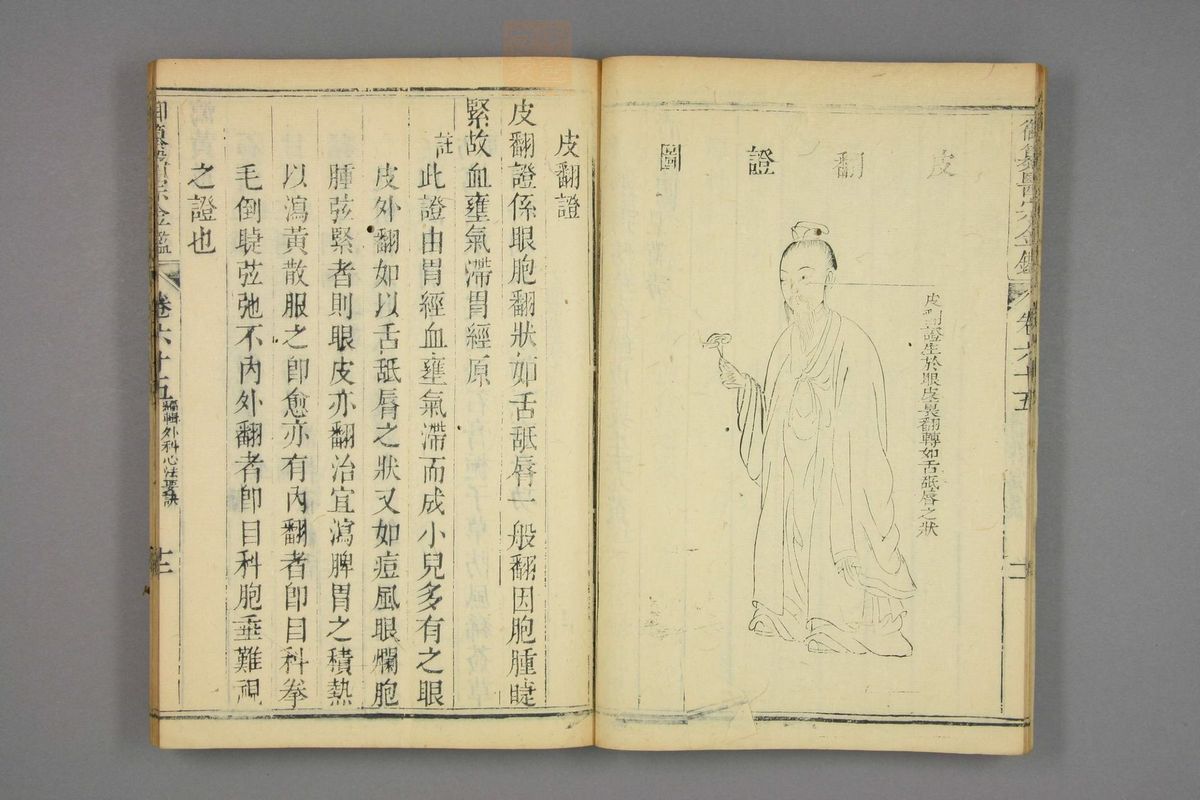 御纂醫宗金鑑 卷六十五
皮翻證圖
皮翻證生於眼皮裏翻轉如舌舐唇之狀
皮翻證
皮翻證係眼胞翻狀如舌舐唇一般翻因胞腫睫
緊故血壅氣滯胃經原
註 此證由胃經血壅氣滯而成小兒多有之眼
皮外翻如以舌舐唇之狀又如痘風眼爛胞
腫弦緊者則眼皮亦翻治宜瀉脾胃之積熱
以瀉黃散服之卽愈亦有內翻者卽目科拳
毛倒睫弦弛不內外翻者卽目科胞垂難視
之證也
御纂醫宗金鑑 卷六十五 編輯外科心法要訣 十二